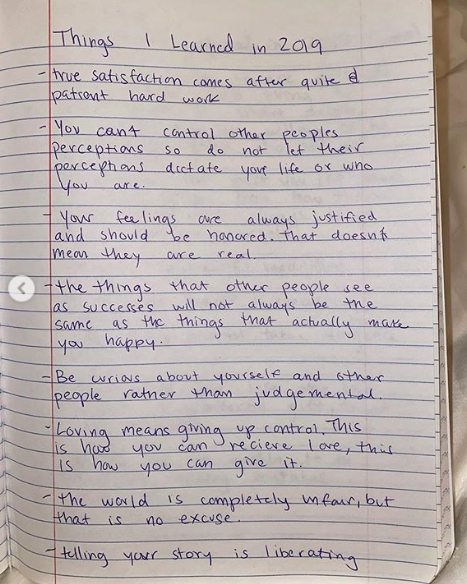 Things I Learned in 2019
- true satisfaction comes after quite &
patient hard work
- You can't control other peoples
perceptions so do not let their
perceptions dictate your life or who
you are.
- Your feelings are always justified
and should be honored. that doesn't
mean they are real.
- the things that other people see
as successes will not always be the
same as the things that actually make
you happy.
- Be curious about yourself and other
people rather than judgemental.
- Loving means giving up control. This
is how you can recieve love, this
is how you can give it.
- the world is completely unfair, but
that is no excuse.
- telling your story is liberating